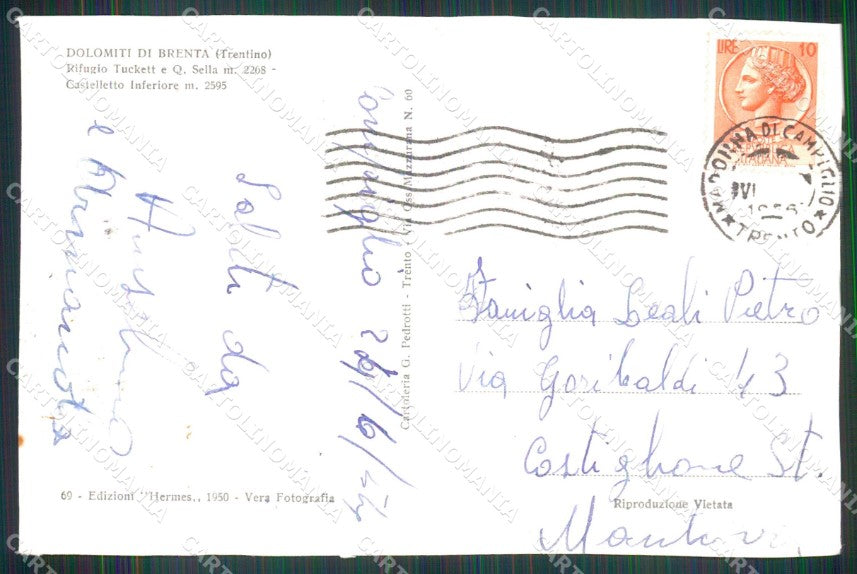 DOLOMITI DI BRENTA (Trentino)
Rifugio Tuckett e Q. Sella m. 2268 -
Castelletto Inferiore m. 2595
Saluti da
e
69 - Edizioni "Hermes., 1950 - Vera Fotografia
Cartoleria G. Pedrotti - Trento - Via Oss Mazzurana N. 60
LIRE 10
MADONNA DI CAMPIGLIO
TRENTO
Famiglia Leali Pietro
Via Garibaldi 43
Castiglione St.
Mantova
Riproduzione Vietata
CARTOLINOMANIA